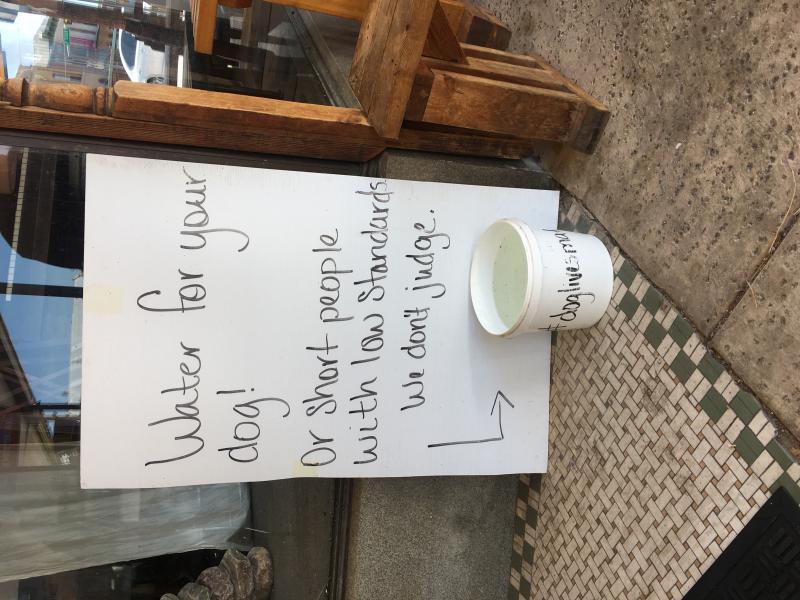 Water for your
dog!
Or Short people
with low Standards
We don't judge.
doglivesma